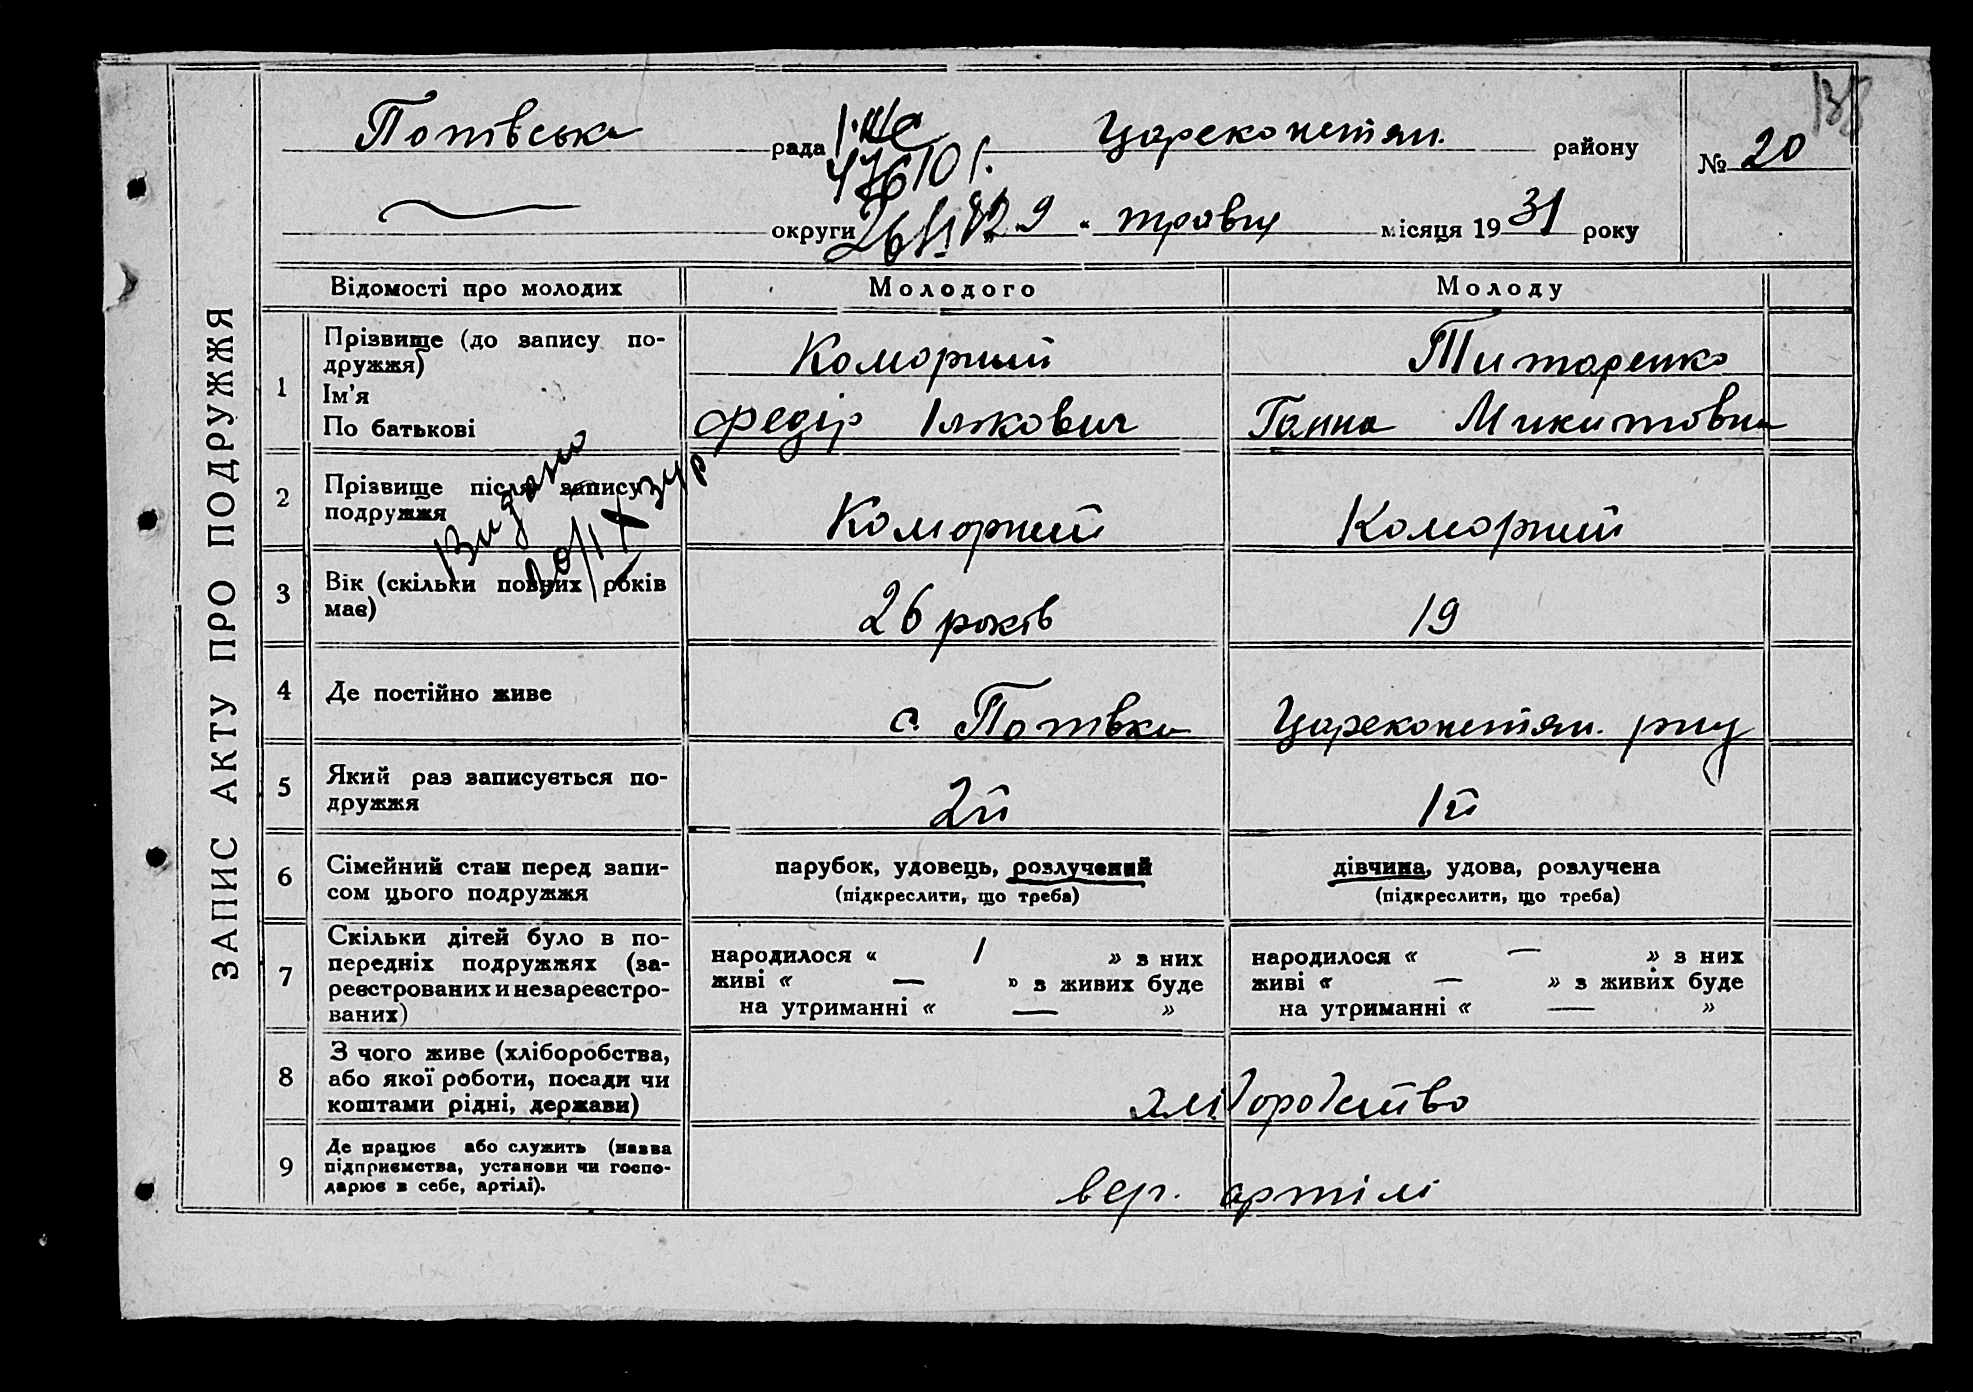 138
Потівська рада Царекопстян. району № 20
округи 29 " травня місяця 1931 року
ЗАПИС АКТУ ПРО ПОДРУЖЖЯ
Відомості про молодих Молодого Молоду
1 Прізвище (до запису по-
дружжя) Коморний Титаренко
Ім'я
По батькові ФедірІлькович Ганна Микитовна
Видано
20/IX 31 р
2 Прізвище після запису
подружжя Коморний Коморний
3 Вік (скільки повних років
має) 26 років 19
4 Де постійно живе с. Потівка Царекопстян. рну
5 Який раз записується по-
дружжя 2й 1й
6 Сімейний стан перед запи-
сом цього подружжя
парубок, удовець, розлучений
(підкреслити, що треба)
дівчина, удова, розлучена
(підкреслити, що треба)
7 Скільки дітей було в по-
передніх подружжях (за-
реєстрованих и незареєстро-
ваних)
народилося « 1 » з них
живі « — » з живих буде
на утриманні « — »
народилося « — » з них
живі « — » з живих буде
на утриманні « — »
8 З чого живе (хліборобства,
або якої роботи, посади чи
коштами рідні, держави) хліборобство
9 Де працює або служить (назва
підприємства, установи чи госпо-
дарює в себе, артілі). вер. артілі